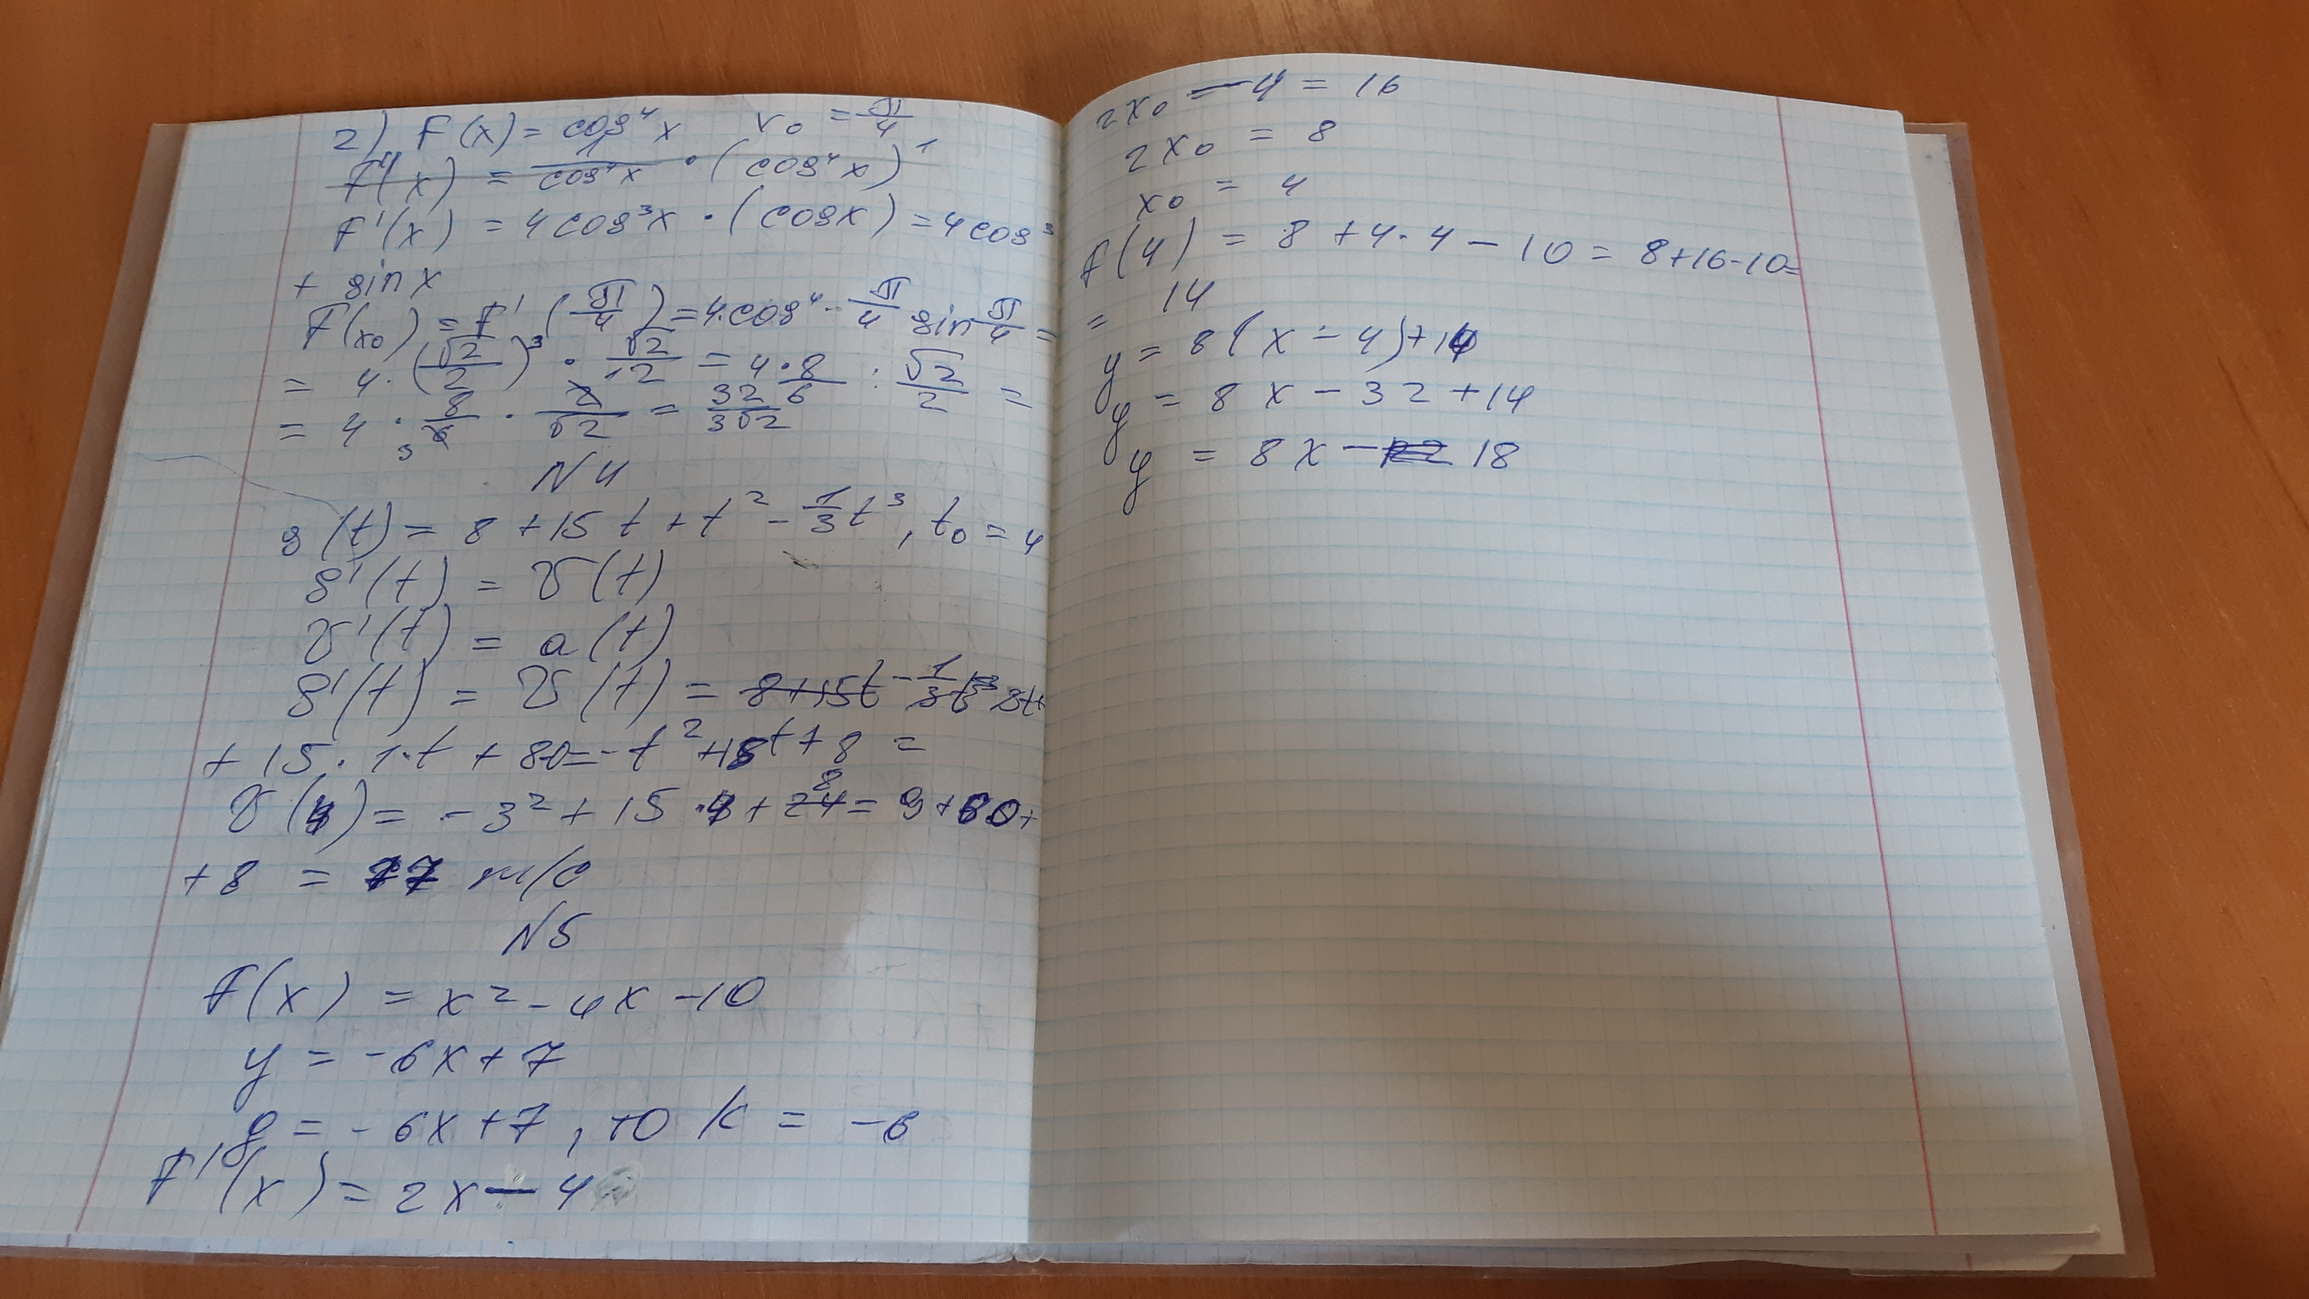 2) F(x) = cos⁴x x₀ = π/4
F'(x) = 1/cos⁴x · (cos⁴x)'
F'(x) = 4cos³x · (cosx) = 4cos³
+ sin x
F(x₀) = F'(π/4) = 4·cos⁴ · π/4 sin π/4 =
= 4 · (√2/2)³ · √2/12 = 4 · 8/6 : √2/2 =
= 4 · 8/6 3 · 2/√2 = 32/3√2
N4
s(t) = 8 + 15t + t² - 1/3t³, t₀ = 4
s'(t) = v(t)
v'(t) = a(t)
s'(t) = v(t) = 8+15t - 1/3t³ 3t+
+ 15 · 1·t + 80 = -t² + 18t + 8 =
v(4) = -3² + 15 · 4 + 8 = 9 + 60 +
+ 8 = 77 м/с
N5
F(x) = x² - 4x - 10
y = -6x + 7
y = -6x + 7, то k = -6
F'(x) = 2x - 4
2x₀ - 4 = 16
2x₀ = 8
x₀ = 4
F(4) = 8 + 4·4 - 10 = 8+16-10=
= 14
y = 8(x - 4) + 14
y = 8x - 32 + 14
y = 8x - 18